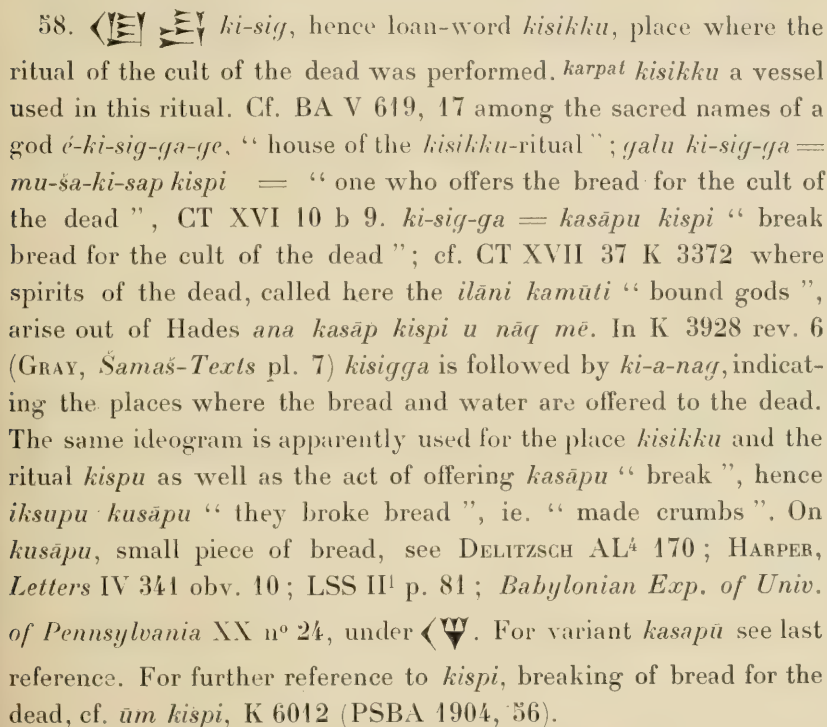 58. 𒆠 𒋝 ki-sig, hence loan-word kisikku, place where the
ritual of the cult of the dead was performed. karpat kisikku a vessel
used in this ritual. Cf. BA V 619, 17 among the sacred names of a
god é-ki-sig-ga-ge, “ house of the kisikku-ritual ” ; galu ki-sig-ga =
mu-ša-ki-sap kispi = “ one who offers the bread for the cult of
the dead ”, CT XVI 10 b 9. ki-sig-ga = kasāpu kispi “ break
bread for the cult of the dead ” ; cf. CT XVII 37 K 3372 where
spirits of the dead, called here the ilāni kamūti “ bound gods ”,
arise out of Hades ana kasāp kispi u nāq mē. In K 3928 rev. 6
(GRAY, Šamaš-Texts pl. 7) kisigga is followed by ki-a-nag, indicat-
ing the places where the bread and water are offered to the dead.
The same ideogram is apparently used for the place kisikku and the
ritual kispu as well as the act of offering kasāpu “ break ”, hence
iksupu kusāpu “ they broke bread ”, ie. “ made crumbs ”. On
kusāpu, small piece of bread, see DELITZSCH AL⁴ 170 ; HARPER,
Letters IV 341 obv. 10 ; LSS II¹ p. 81 ; Babylonian Exp. of Univ.
of Pennsylvania XX nº 24, under. For variant kasapū see last
reference. For further reference to kispi, breaking of bread for the
dead, cf. ūm kispi, K 6012 (PSBA 1904, 56).